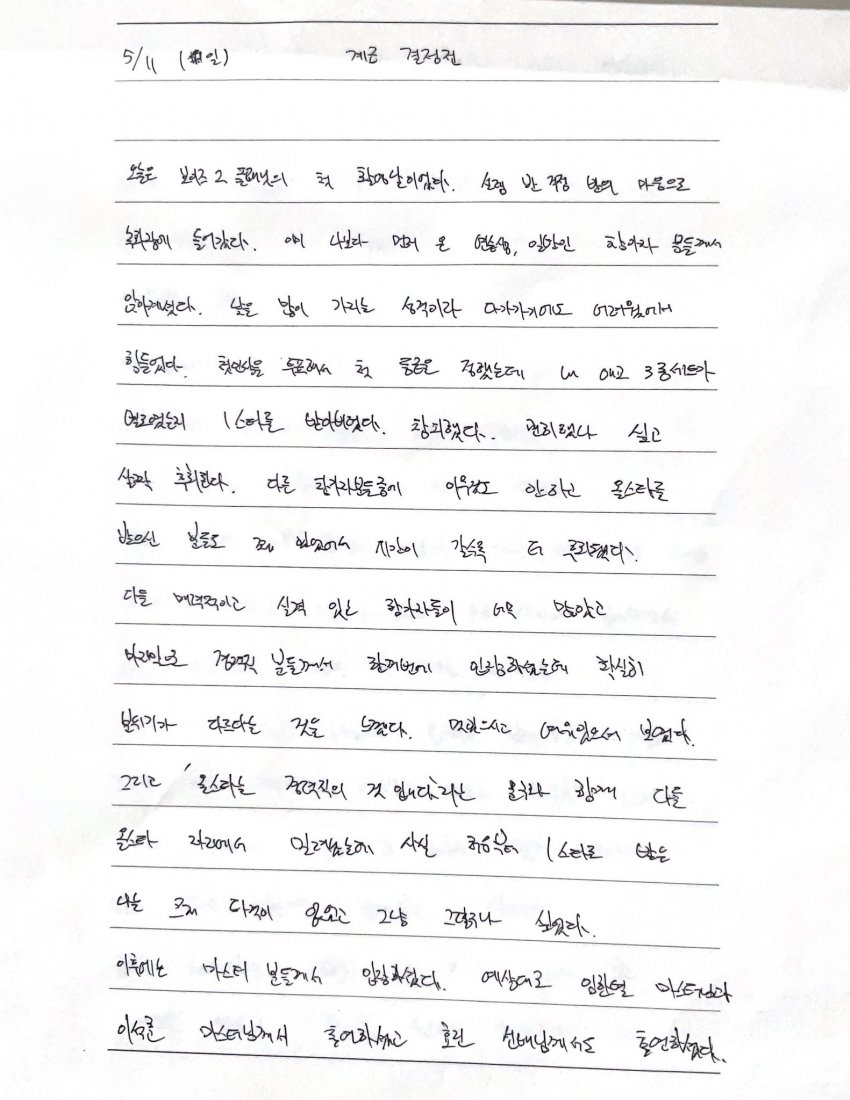 5/11 (일) 계급 결정전
오늘은 보이즈 2 플래닛의 첫 촬영날이었다. 설렘 반 걱정 반의 마음으로
촬영장에 들어갔다. 이미 나보다 먼저 온 연습생, 일반인 참가자 분들께서
앉아계셨다. 낯을 많이 가리는 성격이라 다가가기에도 어려웠어서
힘들었다. 첫인상을 투표해서 첫 등급을 정했는데 애교 3종세트가
별로였는지 1스타를 받아버렸다. 창피했다. 괜히했나 싶고
살짝 후회된다. 다른 참가자분들중에 아무것도 안하고 올스타를
받으신 분들도 꽤 있었어서 시간이 갈수록 더 후회됐다.
다들 매력적이고 실력 있는 참가자들이 너무 많았고
마지막으로 경력직 분들께서 한꺼번에 입장하셨는데 확실히
분위기가 다르다는 것을 느꼈다. 멋있으시고 여유있으셔 보였다.
그리고 '올스타는 경력직의 것 입니다'라는 문구와 함께 다들
올스타 자리에서 밀려났는데 사실 처음부터 1스타를 받은
나는 크게 타격이 없었고 그냥 그렇구나 싶었다.
이후에는 마스터 분들께서 입장하셨다. 예상대로 임한별 마스터님과
이석훈 마스터님께서 출연하셨고 효린 선배님께서도 출연하셨다.